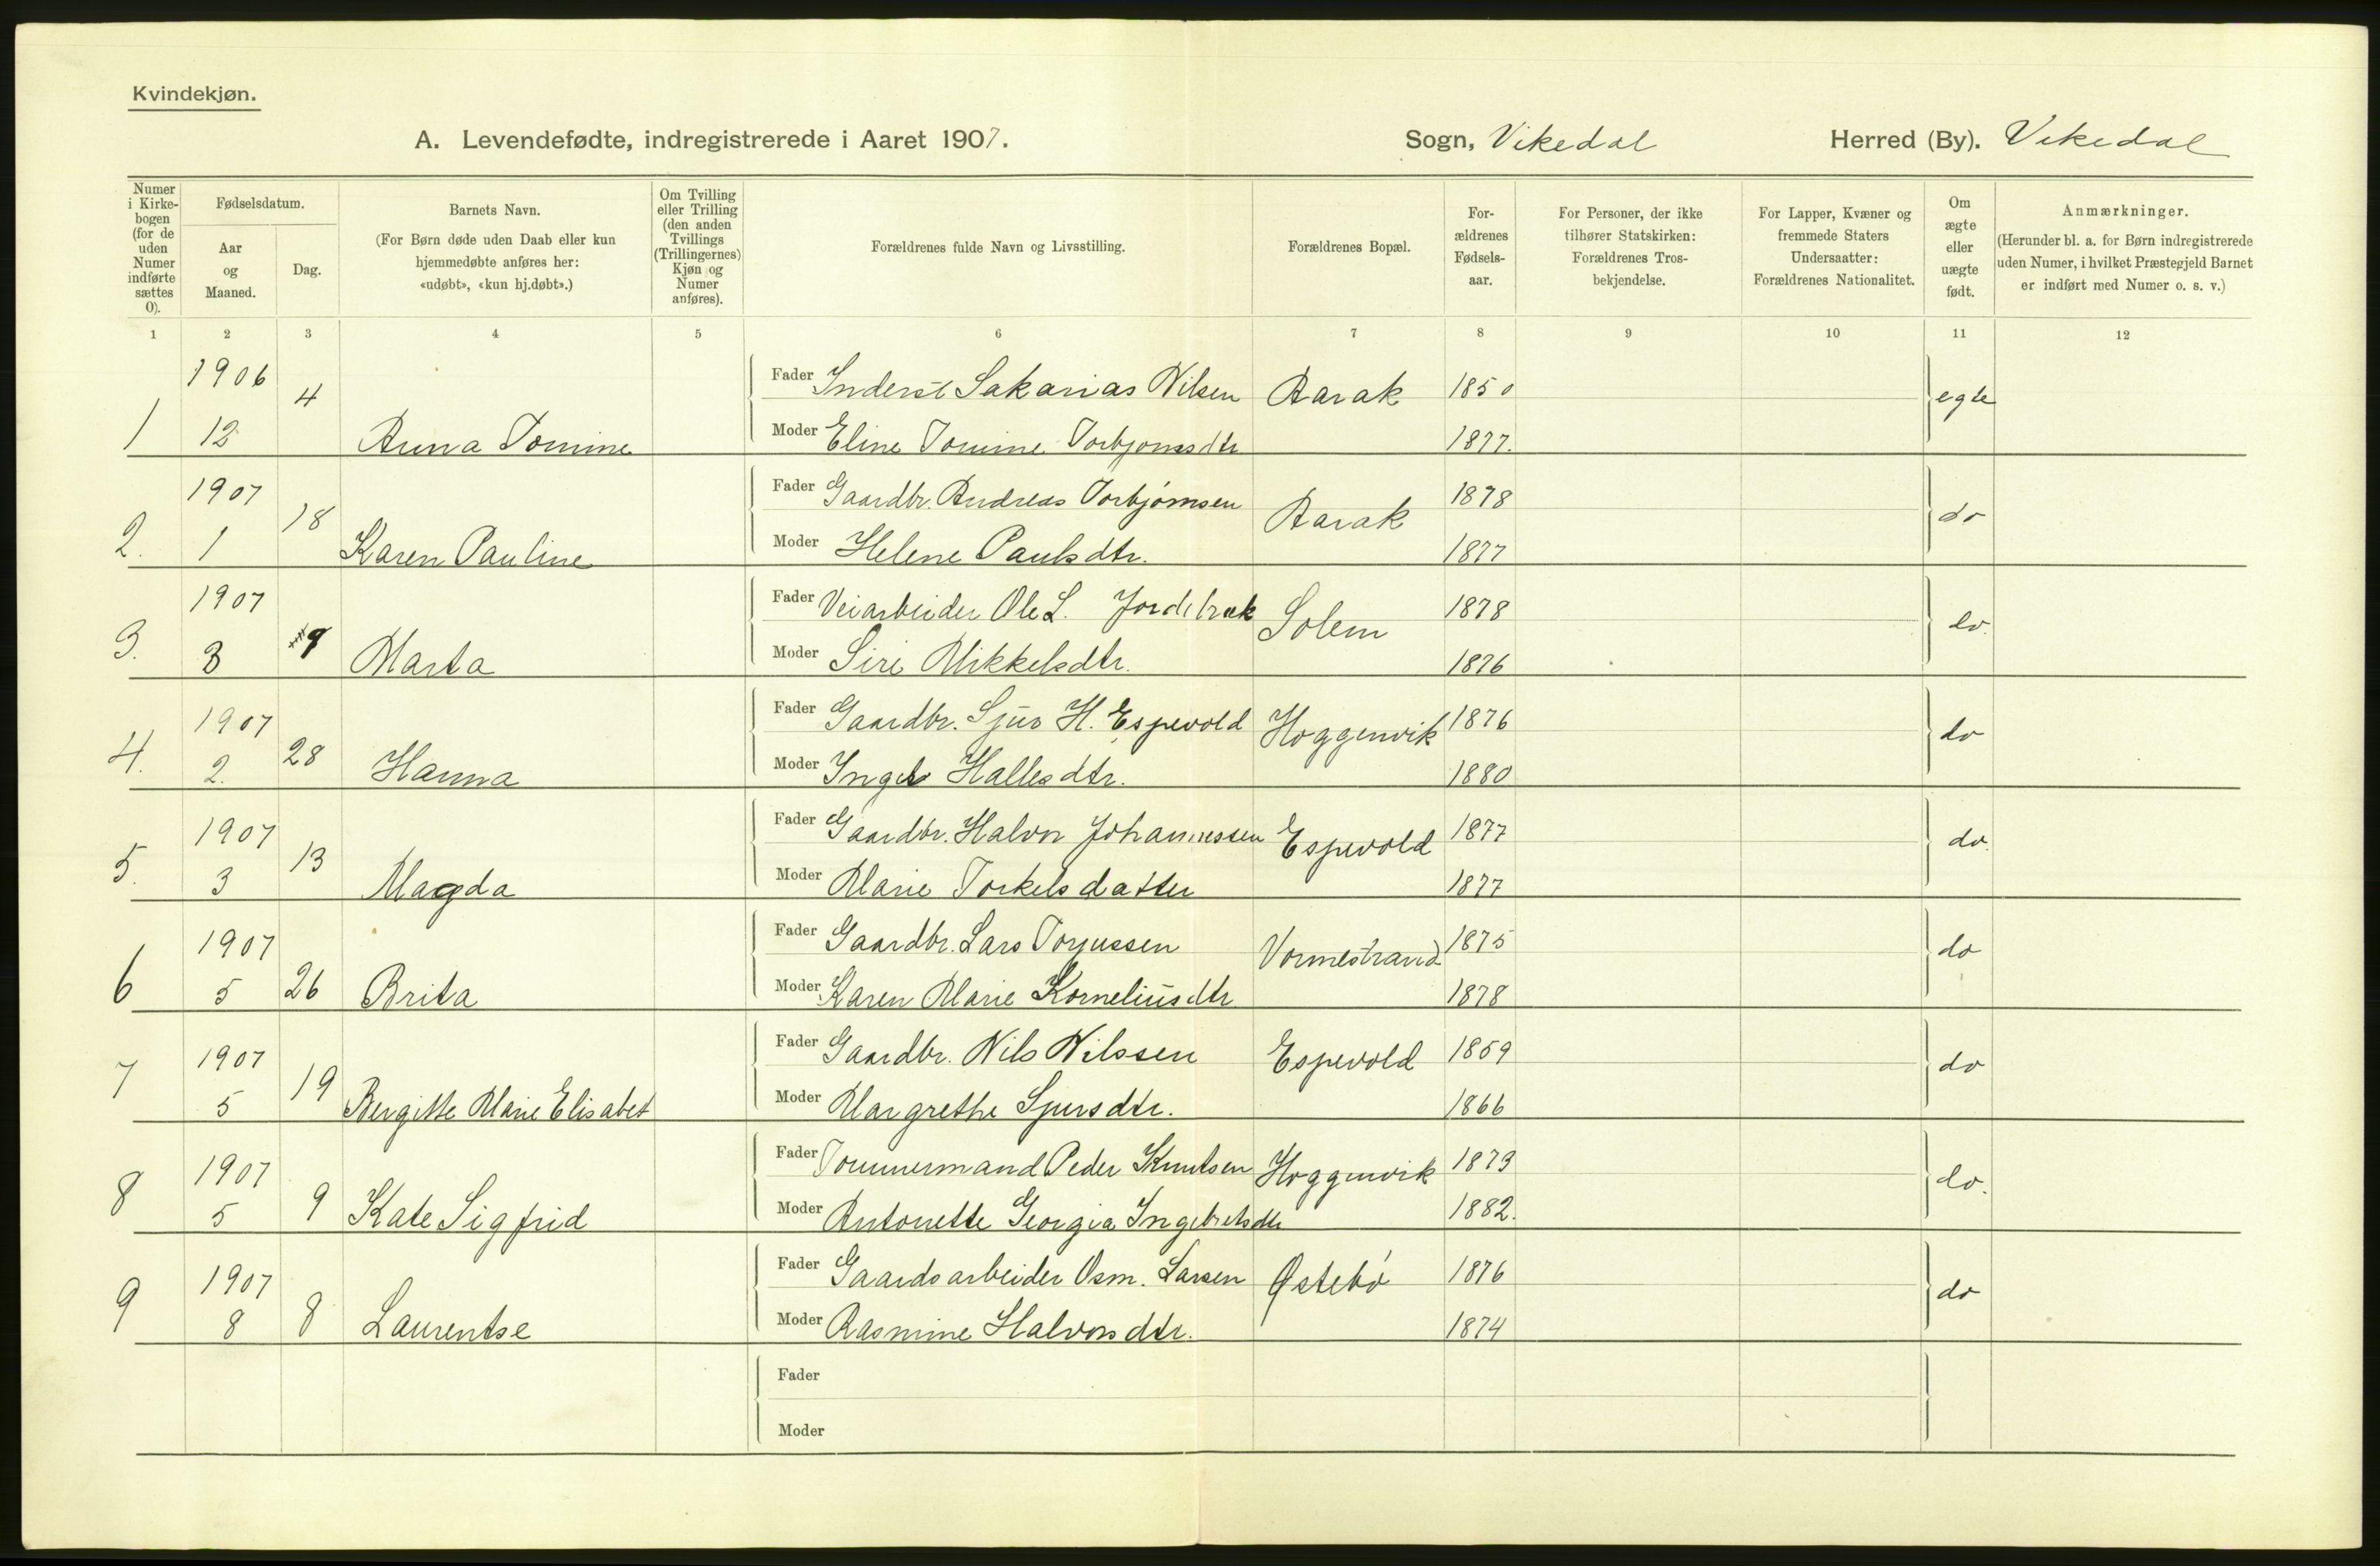 Kvindekjøn.
A. Levendefødte, indregistrerede i Aaret 1907. Sogn, Vikedal Herred (By). Vikedal
Numer i Kirke-bogen (for de uden Numer indførte sættes 0).
Fødselsdatum.
Aar og Maaned.
Dag.
Barnets Navn.
(For Børn døde uden Daab eller kun
hjemmedøbte anføres her:
«udøbt», «kun hj.døbt».)
Om Tvilling
eller Trilling
(den anden
Tvillings
(Trillingernes)
Kjøn og
Numer
anføres).
Forældrenes fulde Navn og Livsstilling.
Forældrenes Bopæl.
For-
ældrenes
Fødsels-
aar.
For Personer, der ikke
tilhører Statskirken:
Forældrenes Tros-
bekjendelse.
For Lapper, Kvæner og
fremmede Staters
Undersaatter:
Forældrenes Nationalitet.
Om
ægte
eller
uægte
født.
Anmærkninger.
(Herunder bl. a. for Børn indregistrerede
uden Numer, i hvilket Præstegjeld Barnet
er indført med Numer o. s. v.)
1 2 3 4 5 6 7 8 9 10 11 12
1906 4 Fader Inderst Sakarias Nilsen Aarak 1850 egte
1 12 Anna Tomine Moder Eline Tomine Torbjørnsdtr 1877.
1907 18 Fader Gaardbr. Andreas Torbjørnsen Aarak 1878 do
2. 1 Karen Pauline Moder Helene Paulsdtr. 1877
1907 Fader Veiarbeider Ole L. Jordebræk Solem 1878 do.
3. 3 9 Marta Moder Siri Mikkelsdtr. 1876
1907 28 Fader Gaardbr. Sjur H. Espevold Hoggenvik 1876 do
4. 2. Hanna Moder Hallesdtr. 1880
1907 13 Fader Gaardbr. Halvor Johannessen Espevold 1877 do.
5. 3 Magda Moder Marie Torkelsdatter 1877
1907 Fader Gaardbr. Lars Torjussen Vormestrand 1875 do
6 5 26 Brita Moder Karen Marie Korneliusdtr 1878
1907 19 Fader Gaardbr. Nils Nilssen Espevold 1859 do
7 5 Bergitte Marie Elisabet Moder Margrethe Sjursdtr. 1866
1907 Fader Tømmermand Peder Knutsen Hoggenvik 1873 do.
8 5 9 Kate Sigfrid Moder Antonette Georgia Ingebretsdtr 1882.
1907 Fader Gaardsarbeider Osm. Larsen Østebø 1876 do
9 8 8 Laurentse Moder Rasmine Halvorsdtr. 1874
Fader
Moder